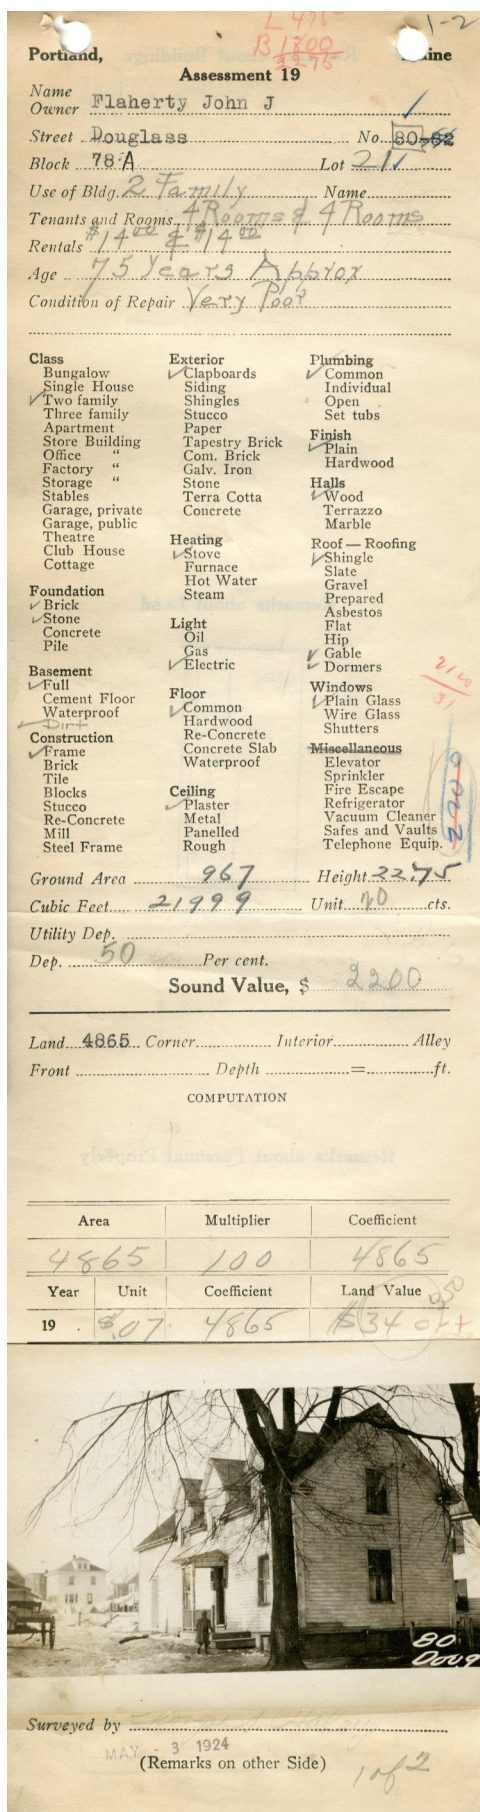 L 475
B 1800
2275
1-2
Portland, Maine
Assessment 19
Name
Owner Flaherty John J
Street Douglass No. 80-82
Block 78-A Lot 21
Use of Bldg. 2 Family Name
Tenants and Rooms 4 Rooms & 4 Rooms
Rentals $14.00 & $14.00
Age 75 Years Approx
Condition of Repair Very Poor
Class
Bungalow
Single House
Two family
Three family
Apartment
Store Building
Office "
Factory "
Storage "
Stables
Garage, private
Garage, public
Theatre
Club House
Cottage
Foundation
Brick
Stone
Concrete
Pile
Basement
Full
Cement Floor
Waterproof
Dirt
Construction
Frame
Brick
Tile
Blocks
Stucco
Re-Concrete
Mill
Steel Frame
Exterior
Clapboards
Siding
Shingles
Stucco
Paper
Tapestry Brick
Com. Brick
Galv. Iron
Stone
Terra Cotta
Concrete
Heating
Stove
Furnace
Hot Water
Steam
Light
Oil
Gas
Electric
Floor
Common
Hardwood
Re-Concrete
Concrete Slab
Waterproof
Ceiling
Plaster
Metal
Panelled
Rough
Plumbing
Common
Individual
Open
Set tubs
Finish
Plain
Hardwood
Halls
Wood
Terrazzo
Marble
Roof — Roofing
Shingle
Slate
Gravel
Prepared
Asbestos
Flat
Hip
Gable
Dormers
Windows
Plain Glass
Wire Glass
Shutters
Miscellaneous
Elevator
Sprinkler
Fire Escape
Refrigerator
Vacuum Cleaner
Safes and Vaults
Telephone Equip.
2100
31
2200
Ground Area 967 Height 22.75
Cubic Feet 21999 Unit 20 cts.
Utility Dep.
Dep. 50 Per cent.
Sound Value, $ 2200
Land 4865 Corner Interior Alley
Front Depth = ft.
COMPUTATION
Area Multiplier Coefficient
4865 100 4865
Year Unit Coefficient Land Value
19 . $.07 4865 $340
80
Doug
Surveyed by
MAY - 3 1924
(Remarks on other Side)
1 of 2